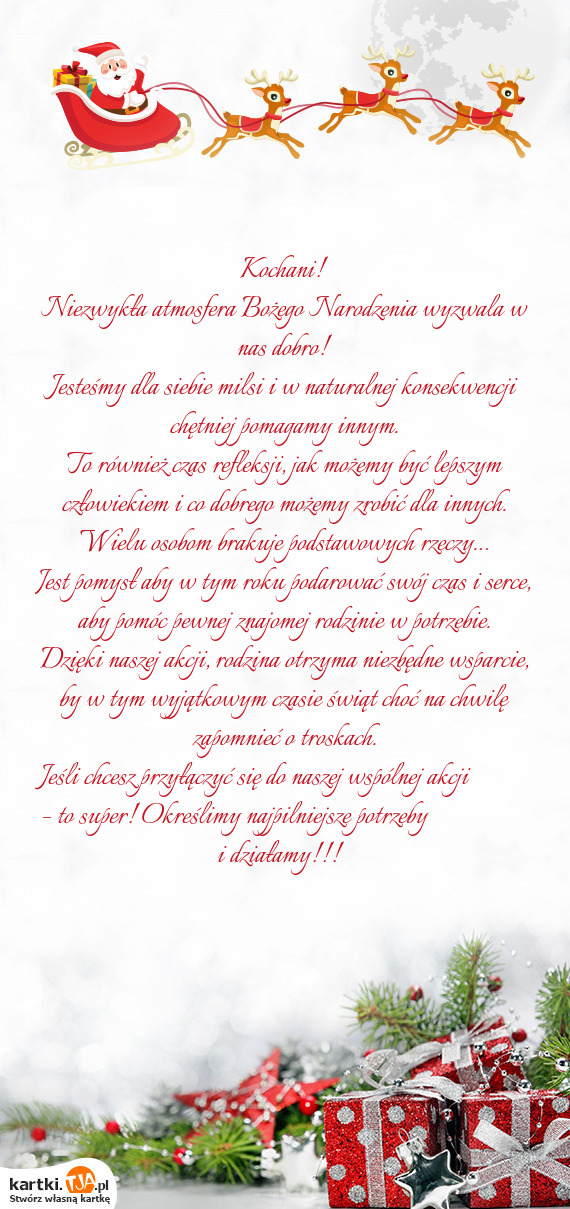 Kochani!
Niezwykła atmosfera Bożego Narodzenia wyzwala w
nas dobro!
Jesteśmy dla siebie milsi i w naturalnej konsekwencji
chętniej pomagamy innym.
To również czas refleksji, jak możemy być lepszym
człowiekiem i co dobrego możemy zrobić dla innych.
Wielu osobom brakuje podstawowych rzeczy...
Jest pomysł aby w tym roku podarować swój czas i serce,
aby pomóc pewnej znajomej rodzinie w potrzebie.
Dzięki naszej akcji, rodzina otrzyma niezbędne wsparcie,
by w tym wyjątkowym czasie świąt choć na chwilę
zapomnieć o troskach.
Jeśli chcesz przyłączyć się do naszej wspólnej akcji
- to super! Określimy najpilniejsze potrzeby
i działamy!!!
kartki.TJA.pl
Stwórz własną kartkę